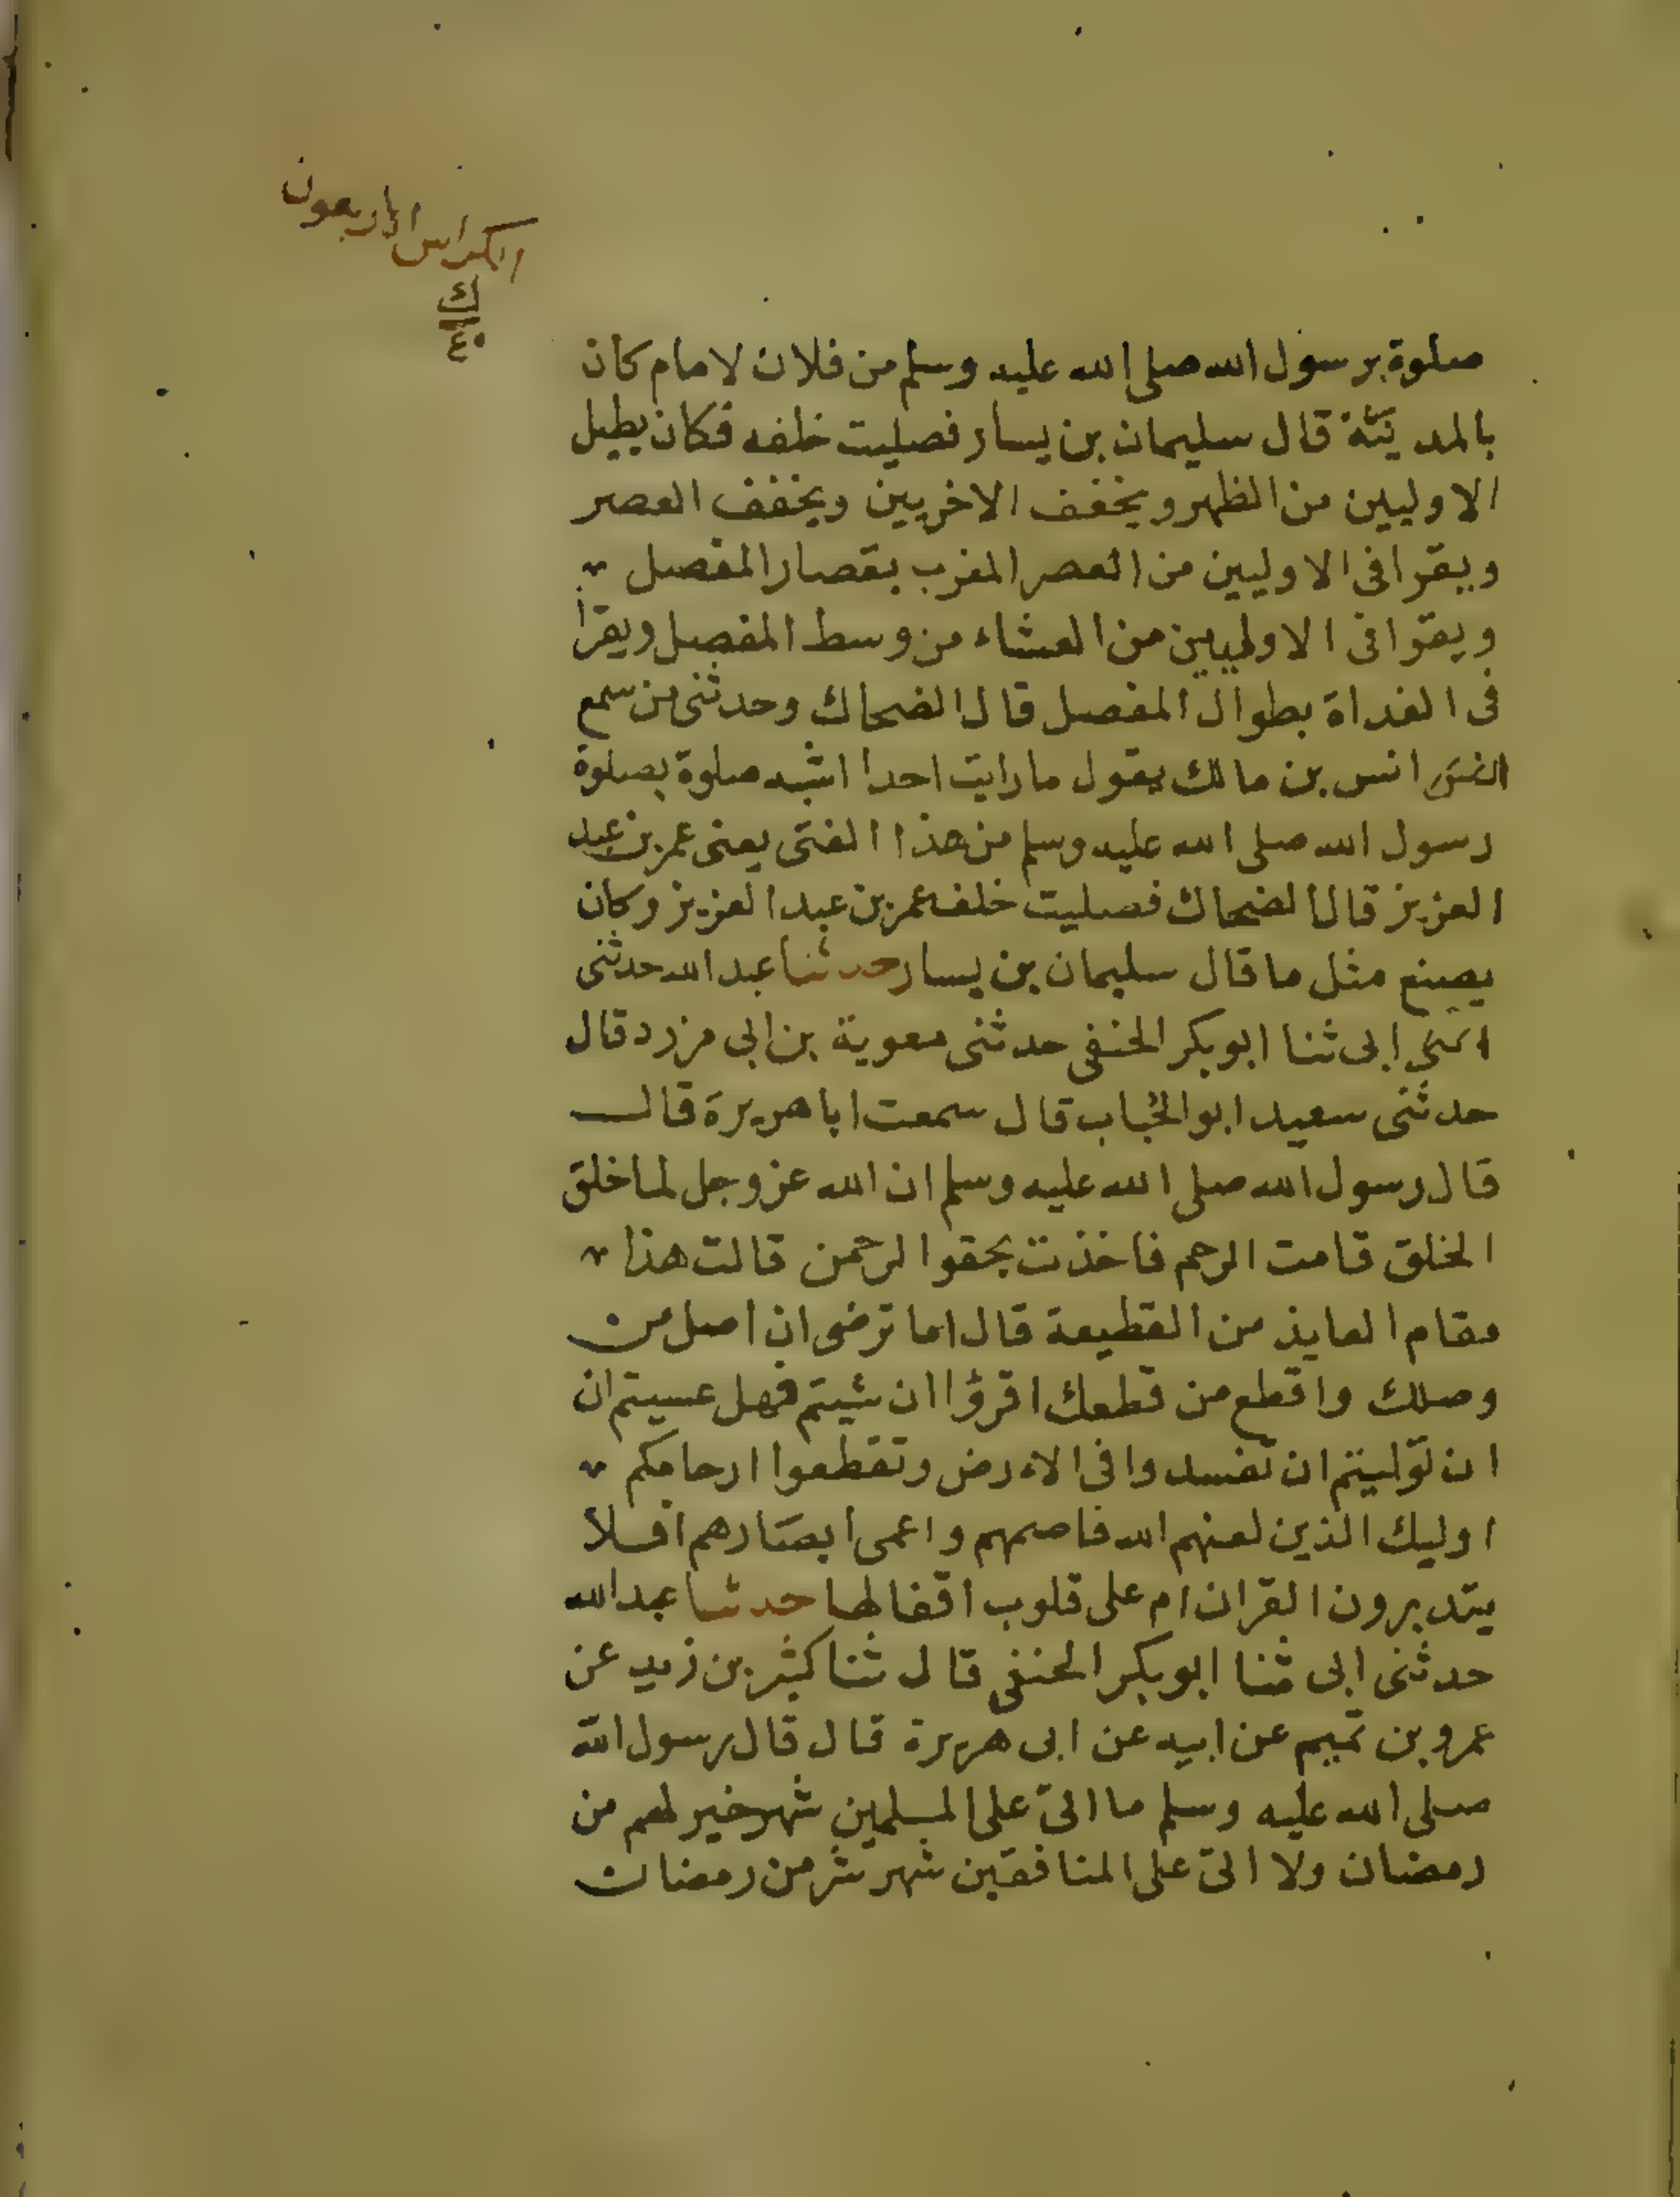 الكراس الاربعون
ك
٤٠
صلوة برسول الله صلى الله عليه وسلم من فلان لامام كان
بالمدينة قال سليمان بن يسار فصليت خلفه فكان يطيل
الاوليين من الظهر ويخفف الاخريين ويخفف العصر
ويقرا فى الاوليين من العصر المغرب بقصار المفصل
ويقرا فى الاوليين من العشاء من وسط المفصل ويقرا
فى الغداة بطوال المفصل قال الضحاك وحدثنى من سمع
انس بن مالك يقول ما رايت احدا اشبه صلوة بصلوة
رسول الله صلى الله عليه وسلم من هذا الفتى يعنى عمر بن عبد
العزيز قال الضحاك فصليت خلف عمر بن عبد العزيز وكان
يصنع مثل ما قال سليمان بن يسار حدثنا عبد الله حدثنى
ابى ثنا ابو بكر الحنفى حدثنى معوية بن ابى مزرد قال
حدثنى سعيد ابو الحباب قال سمعت ابا هريرة قال
قال رسول الله صلى الله عليه وسلم ان الله عز وجل لما خلق
الخلق قامت الرحم فاخذت بحقو الرحمن قالت هذا
مقام العايذ من القطيعة قال اما ترضى ان اصل من
وصلك واقطع من قطعك اقرؤا ان شيتم فهل عسيتم ان
ان توليتم ان تفسدوا فى الارض وتقطعوا ارحامكم
اوليك الذين لعنهم الله فاصمهم واعمى ابصارهم افلا
يتدبرون القران ام على قلوب اقفالها حدثنا عبد الله
حدثنى ابى ثنا ابو بكر الحنفى قال ثنا كثير بن زيد عن
عمرو بن تميم عن ابيه عن ابى هريرة قال قال رسول الله
صلى الله عليه وسلم ما اتى على المسلمين شهر خير لهم من
رمضان ولا اتى على المنافقين شهر شر من رمضان